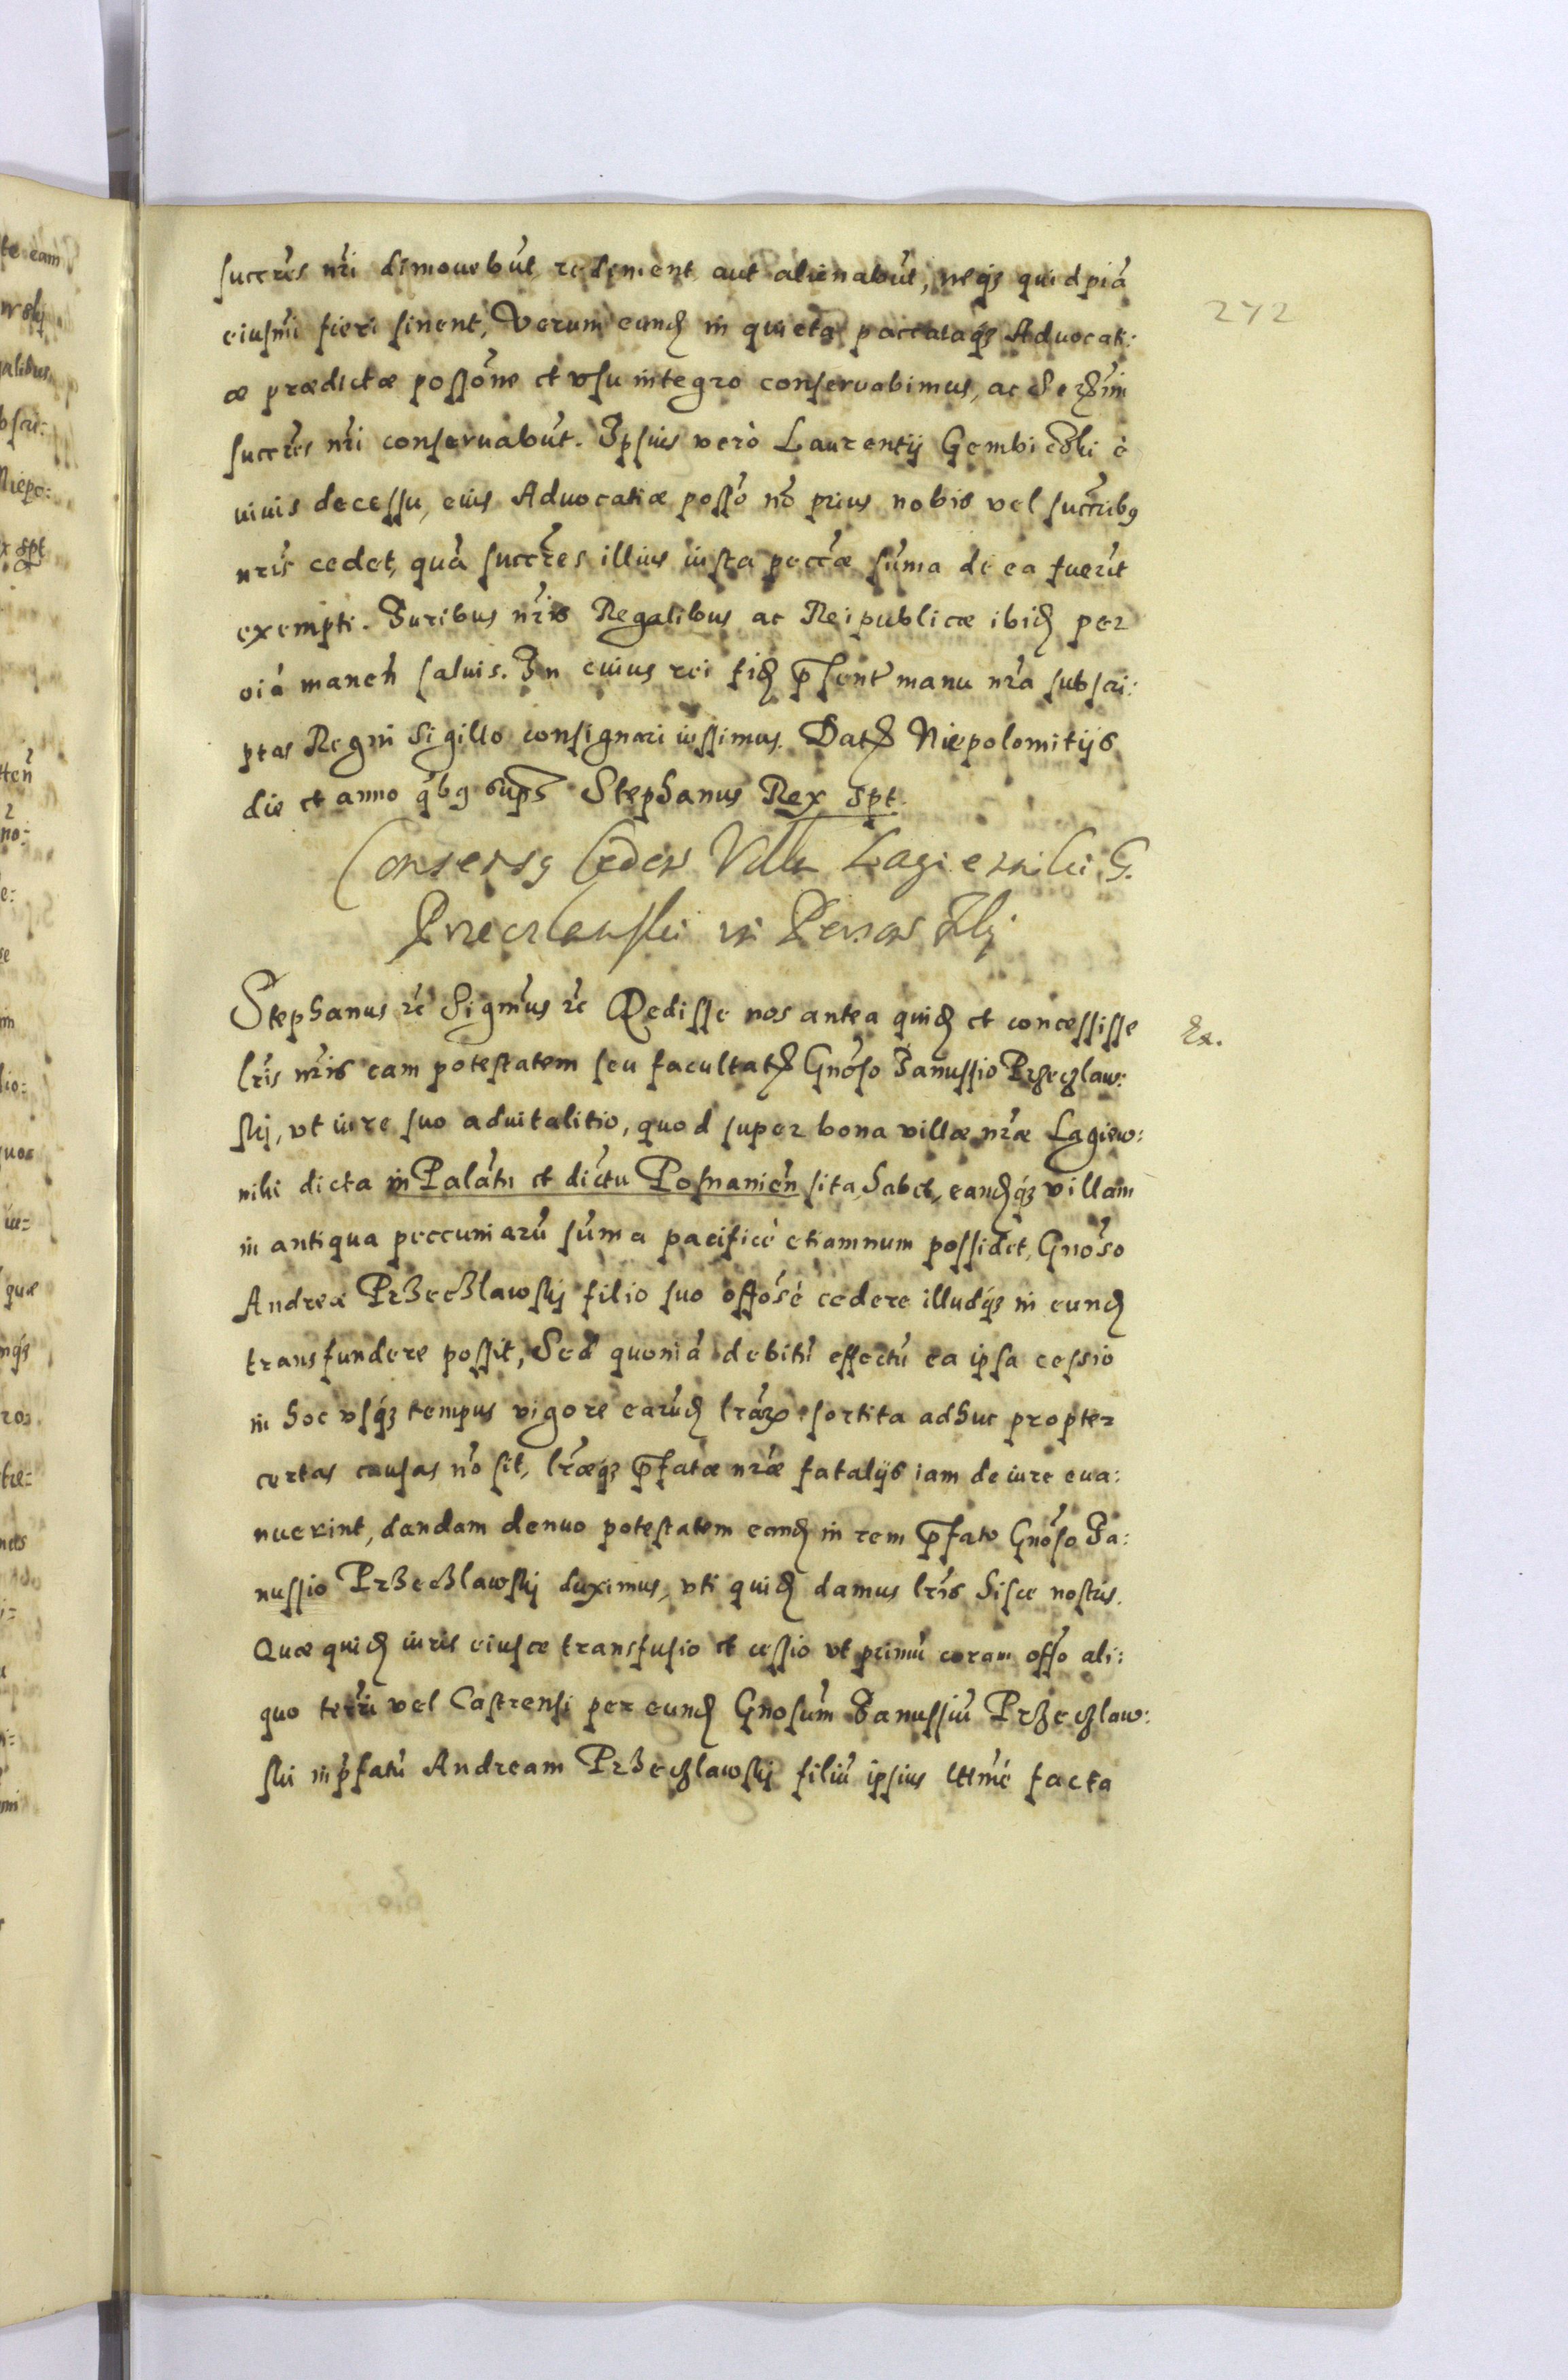 succres nri dimovebut redement aut alienabut, neqз quidpia
eiusmi fieri sinent, Verum eund in quieta paccataqз Advocati:
æ prædictæ possone et usu integro conservabimus, ac Serмi
succres nri conservabut. Ipsius verò Laurentij Gembiczki è
vivis decessu, eius Advocatiæ posso no prius nobis vel succribꝰ
nris cedet, qua succres illius iusta peccæ suma de ea fuerit
exempti. Iuribus nris Regalibus ac Reipublicæ ibid per
oia maneñ salvis. In cuius rei fid p̄sent manu nra subscri:
ptas Regni Sigillo consignari iussimus. Dat Niepolomitijs
die et anno qbꝰ supꝰ Stephanus Rex spt.
Consensꝰ Cedeń Villa Lagiewniki G.
Przeczlawski in Person Filij
242
Ex.
Stephanus rc Sigmus rc Dedisse nos antea quid et concessisse
lris nris eam potestatem seu facultat Gnoso Ianussio Przeczlaw:
skj, ut iure suo advitalitio, quod super bona villæ nræ Lagiew:
niki dicta in Palatu et dictu Posnanien sita habet, eandqз villam
in antiqua peccuniaru suma pacificè etiamnum possidet, Gnoso
Andreæ Przeczlawskj filio suo offosè cedere illudqз in eund
transfundere possit, Sed quonia debitu effectu ea ipsa cessio
in hoc usqз tempus vigore earud lrarꝝ sortita adhuc propter
certas causas no sit, lræqз p̄fatæ nræ fatalijs iam de iure eva:
nuerint, dandam denuo potestatem eand in rem p̄fato Gnoso Ia:
nussio Przeczlawskj duximus, uti quid damus lris hisce nostris.
Quæ quid iuris eiusce transfusio et cessio ut primu coram offo ali:
quo terri vel Castrensi per eund Gnosum Ianussiu Przeczlaw:
ski in pfatu Andream Przeczlawskj filiu ipsius lttmè facta